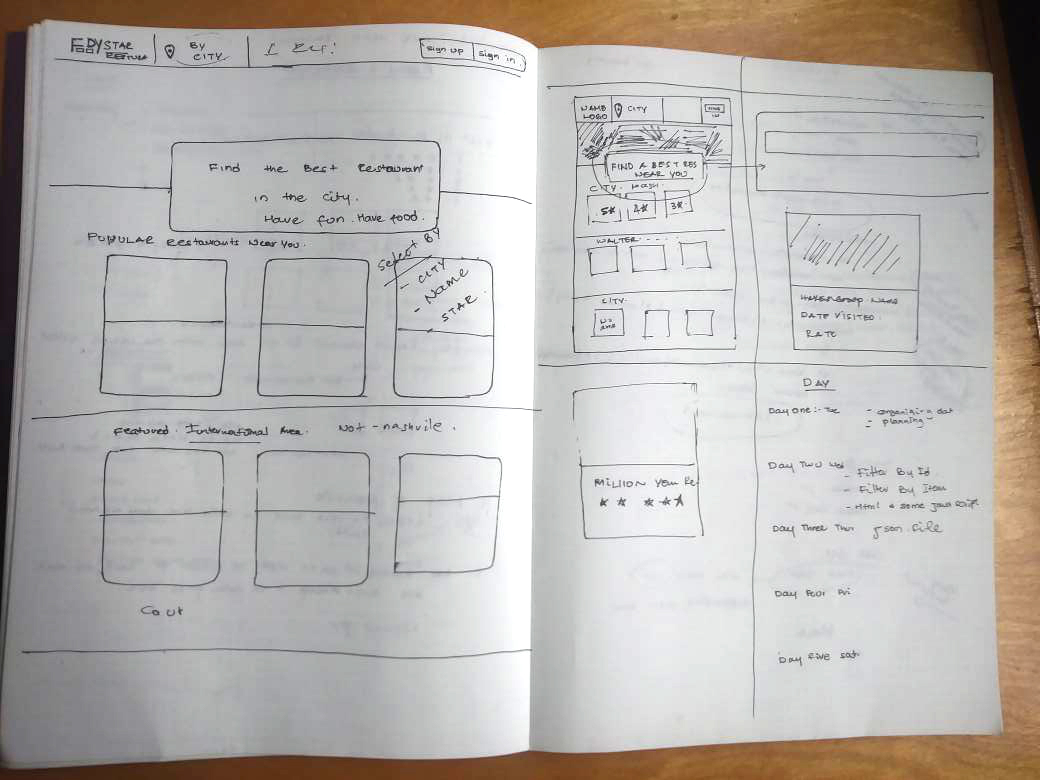 STAR
BY
CITY
sign up
sign in
Find the Best Restaurant
in the city.
Have fun. Have food.
POPULAR Restaurants Near You.
Select BY
- CITY
- Name
STAR
Featured International Area. Not-nashvile.
NAME
LOGO
CITY
FIND A BEST RES
NEAR YOU
CITY.
5★
4★
3★
CITY.
NAME
DATE VISITED
RATE
MILLION YEAR RE
★ ★ ★ ★ ★
DAY
Day one :- Tue
- organizing dat
- planning
Day Two Wed
- Filter By Id
- Filter By Item
- Html & some java script
Day Three Thur json.file
Day Four Fri
Day five sat